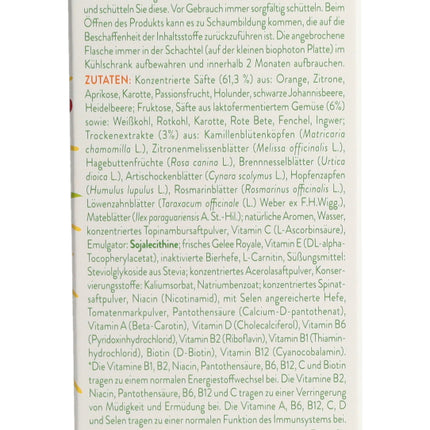 und schütteln Sie diese. Vor Gebrauch immer sorgfältig schütteln. Beim
Öffnen des Produkts kann es zu Schaumbildung kommen, die auf die
Beschaffenheit der Inhaltsstoffe zurückzuführen ist. Die angebrochene
Flasche immer in der Schachtel (auf der kleinen biophoton Platte) im
Kühlschrank aufbewahren und innerhalb 2 Monaten aufbrauchen.
ZUTATEN: Konzentrierte Säfte (61,3 %) aus: Orange, Zitrone,
Aprikose, Karotte, Passionsfrucht, Holunder, schwarze Johannisbeere,
Heidelbeere; Fruktose, Säfte aus laktofermentiertem Gemüse (6%)
sowie: Weißkohl, Rotkohl, Karotte, Rote Bete, Fenchel, Ingwer;
Trockenextrakte (3%) aus: Kamillenblütenköpfen (Matricaria
chamomilla L.), Zitronenmelissenblätter (Melissa officinalis L.),
Hagebuttenfrüchte (Rosa canina L.), Brennnesselblätter (Urtica
dioica L.), Artischockenblätter (Cynara scolymus L.), Hopfenzapfen
(Humulus lupulus L.), Rosmarinblätter (Rosmarinus officinalis L.),
Löwenzahnblätter (Taraxacum officinale (L.) Weber ex F.H.Wigg.),
Mateblätter (Ilex paraguariensis A. St.-Hil.); natürliche Aromen, Wasser,
konzentriertes Topinambursaftpulver, Vitamin C (L-Ascorbinsäure),
Emulgator: Sojalecithine; frisches Gelee Royale, Vitamin E (DL-alpha-
Tocopherylacetat), inaktivierte Bierhefe, L-Carnitin, Süßungsmittel:
Steviolglykoside aus Stevia; konzentriertes Acerolasaftpulver, Konser-
vierungsstoffe: Kaliumsorbat, Natriumbenzoat; konzentriertes Spinat-
saftpulver, Niacin (Nicotinamid), mit Selen angereicherte Hefe,
Tomatenmarkpulver, Pantothensäure (Calcium-D-pantothenat),
Vitamin A (Beta-Carotin), Vitamin D (Cholecalciferol), Vitamin B6
(Pyridoxinhydrochlorid), Vitamin B2 (Riboflavin), Vitamin B1 (Thiamin-
hydrochlorid), Biotin (D-Biotin), Vitamin B12 (Cyanocobalamin).
*Die Vitamine B1, B2, Niacin, Pantothensäure, B6, B12, C und Biotin
tragen zu einem normalen Energiestoffwechsel bei. Die Vitamine B2,
Niacin, Pantothensäure, B6, B12 und C tragen zu einer Verringerung
von Müdigkeit und Ermüdung bei. Die Vitamine A, B6, B12, C, D
und Selen tragen zu einer normalen Funktion des Immunsystems bei.